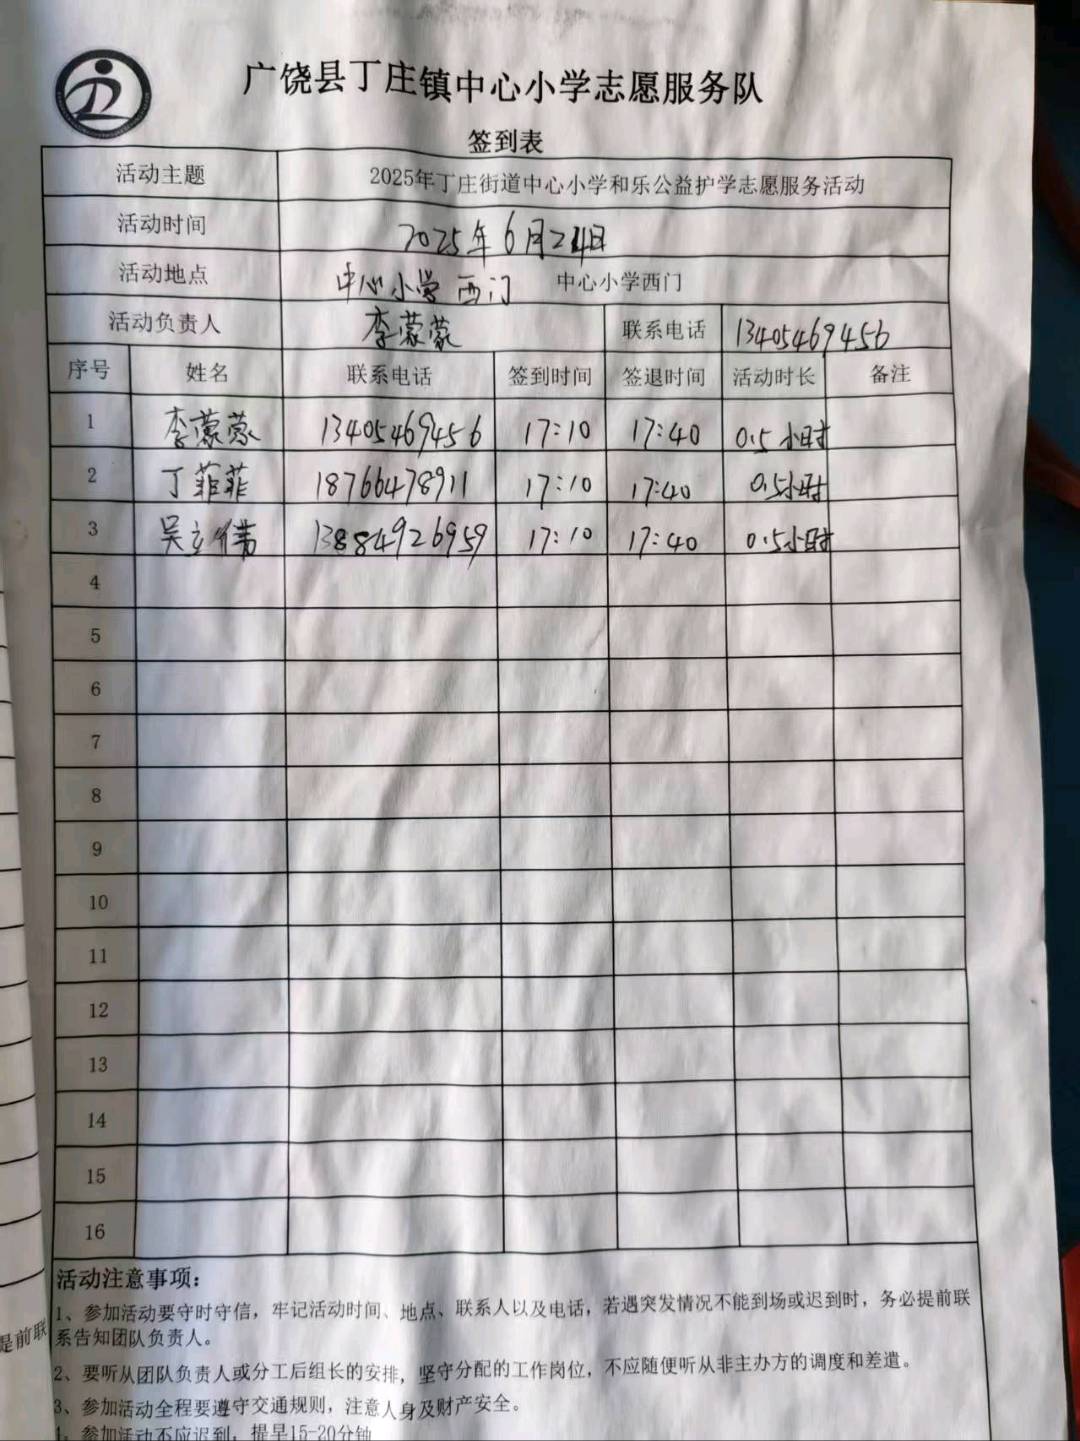 广饶县丁庄镇中心小学志愿服务队
签到表
活动主题 2025年丁庄街道中心小学和乐公益护学志愿服务活动
活动时间 2025年6月24日
活动地点 中心小学西门 中心小学西门
活动负责人 李蒙蒙 联系电话 13405469456
序号 姓名 联系电话 签到时间 签退时间 活动时长 备注
1 李蒙蒙 13405469456 17:10 17:40 0.5小时
2 丁菲菲 18766478911 17:10 17:40 0.5小时
3 吴立伟 13884926959 17:10 17:40 0.5小时
4
5
6
7
8
9
10
11
12
13
14
15
16
活动注意事项：
1、参加活动要守时守信，牢记活动时间、地点、联系人以及电话，若遇突发情况不能到场或迟到时，务必提前联
系告知团队负责人。
2、要听从团队负责人或分工后组长的安排，坚守分配的工作岗位，不应随便听从非主办方的调度和差遣。
3、参加活动全程要遵守交通规则，注意人身及财产安全。
参加活动不应迟到，提早15-20分钟
是前联